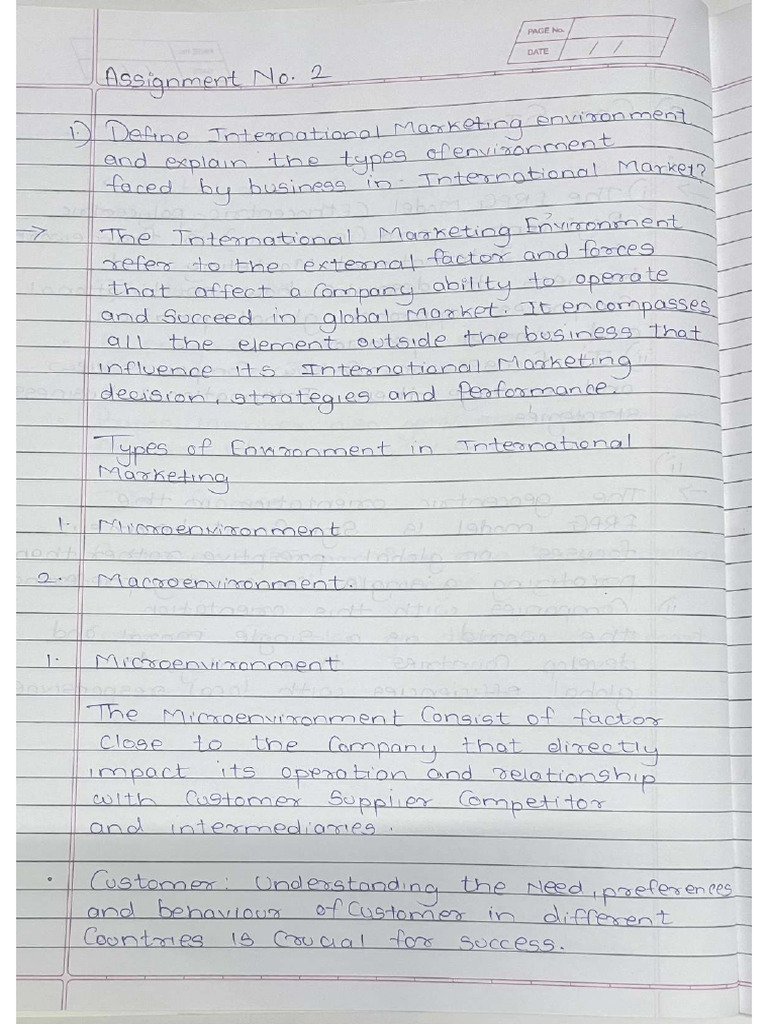 PAGE No.
DATE / /
Assignment No. 2
1.) Define International Marketing environment
and explain the types of environment
faced by business in International Market?
→ The International Marketing Environment
refer to the external factor and forces
that affect a Company ability to operate
and Succeed in global Market. It encompasses
all the element outside the business that
influence its International Marketing
decision, strategies and Performance.
Types of Environment in International
Marketing
1. Microenvironment
2. Macroenvironment.
1. Microenvironment
The Microenvironment Consist of factor
Close to the Company that directly
impact its operation and relationship
with Customer Supplier Competitor
and intermediaries.
• Customer: Understanding the Need, preferences
and behaviour of Customer in different
Countries is Crucial for success.